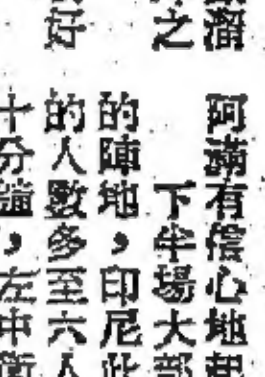 溜
之
好
阿滿有信心地起
下半場大部
的陣地，印尼此
的人數多至六人
十分，左中衛